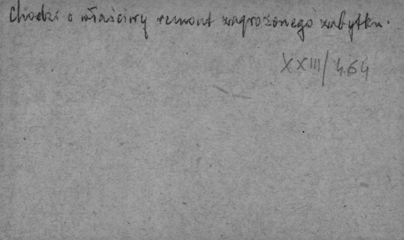 Chodzi o właściwy remont zagrożonego zabytku.
XXIII/464